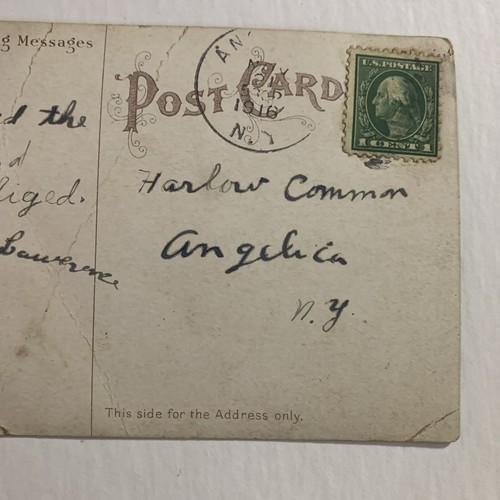 g Messages
POST CARD
AN
MAY
1916
N.Y.
U.S. POSTAGE
1 CENT 1
d the
d
liged.
Lawrence
Harlow Common
Angelica
N.Y.
This side for the Address only.